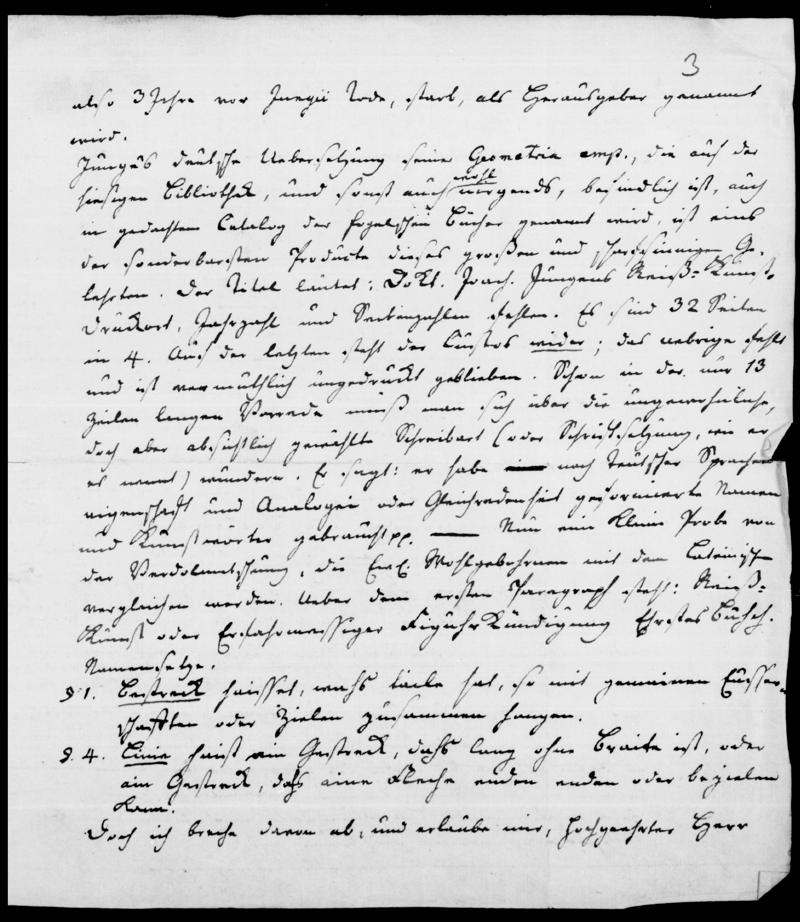 3
also 3 Jahre vor Jungii Tode, starb, als Herausgeber genannt
wird.
Jungius deutsche Uebersetzung seiner Geometria emp., die auf der
hiesigen Bibliothek, und sonst auch wohl nirgends, befindlich ist, auch
in gedachtem Catalog der Fogelschen Bücher genannt wird, ist eins
der sonderbarsten Producte dieses großen und scharfsinnigen Ge-
lehrten. Der Titel lautet: Dokt. Joach. Jungens Reiß-Kunst.
Druckort, Jahrzahl und Seitenzahlen fehlen. Es sind 32 Seiten
in 4. Auf der letzten steht der Custos wider; das uebrige fehlt
und ist vermuthlich ungedruckt geblieben. Schon in der nur 13
Zeilen langen Vorrede muß man sich über die ungewöhnliche,
doch aber absichtlich gewählte Schreibart (oder Schriftsetzung, wie er
es nennt) wundern. Er sagt: er habe nach Teutscher Sprachen
eigenschaft und Analogei oder Gleichredenheit geformierte Namen
und Kunstwörter gebraucht pp. — Nun eine kleine Probe von
der Verdolmetschung, die Ew. Wohlgebohrnen mit dem Lateinisch
vergleichen werden. Ueber dem ersten Paragraph steht: Reiß-
Kunst oder Erfahrmessiger Figuhr Kündigung Ehrstes Buhch.
Namensetze.
§ 1. Gestreck haisset, wahs taile hat, so mit gemeinen Eusser-
schafften oder Zielen zusammen hangen.
§. 4. Linie haist ein Gestreck, dahs lang ohne Braite ist, oder
ain Gestreck, dahs eine Fleche enden oder bezielen
kann.
Doch ich breche davon ab, und erlaube mir, Hochgeehrter Herr